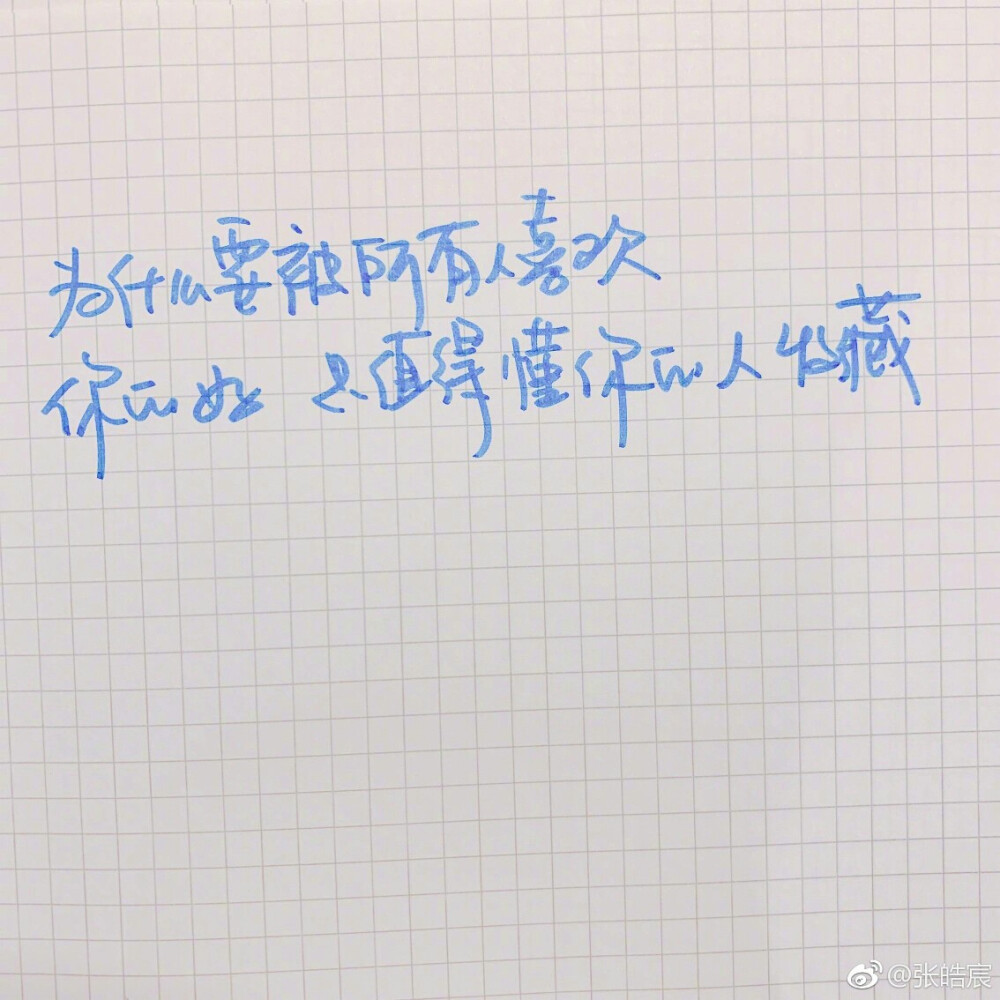 为什么要被所有人喜欢
你的好 只值得懂你的人收藏
@张皓宸